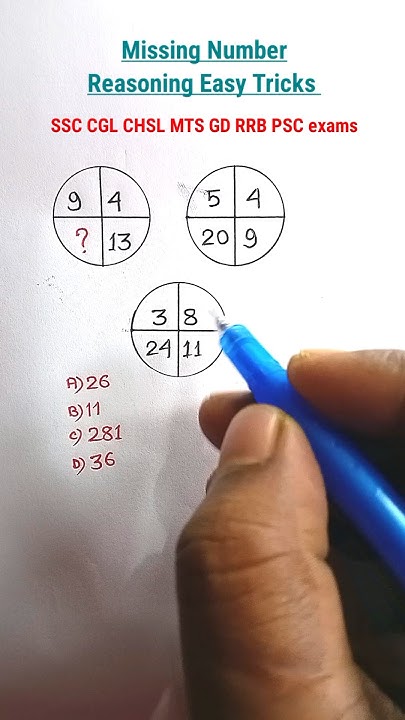 Missing Number
Reasoning Easy Tricks
SSC CGL CHSL MTS GD RRB PSC exams
9 4
? 13
5 4
20 9
3 8
24 11
A) 26
B) 11
C) 281
D) 36